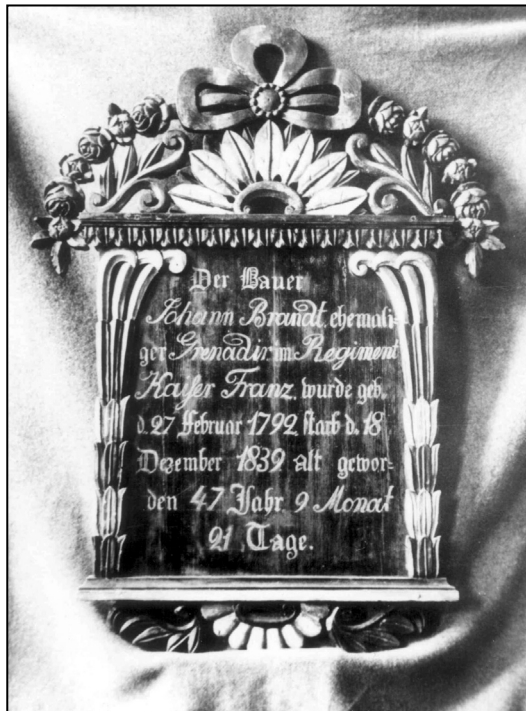 Der Bauer
Johann Brandt, ehemali-
ger Grenadir im Regiment
Kaiser Franz, wurde geb.
d. 27 Februar 1792 starb d. 18
Dezember 1839 alt gewor-
den 47 Jahr. 9 Monat
21 Tage.